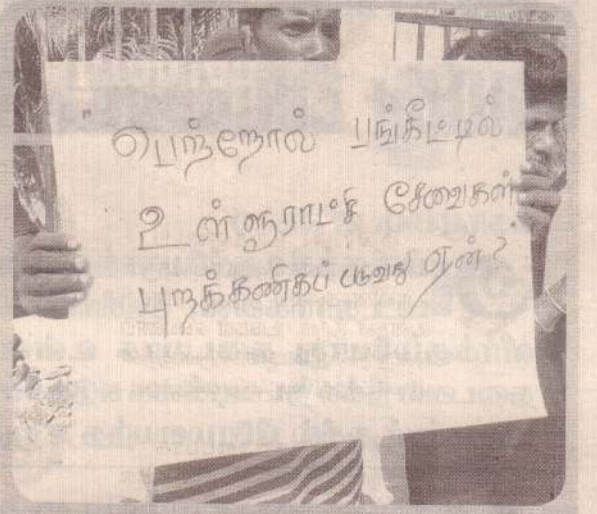 பெற்றோல் பங்கீட்டில்
உள்ளூராட்சி சேவைகள்
புறக்கணிகப் படுவது ஏன்?